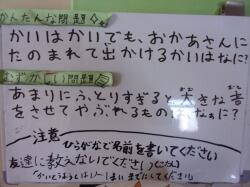 かんたんな問題
かいはかいでも、おかあさんに
たのまれて出かけるかいはなに?
むずかしい問題
あまりにふとりすぎると大きな音
をさせてやぶれるものはなぁに?
注意
ひらがなで名前を書いてください
友達に教えないでください